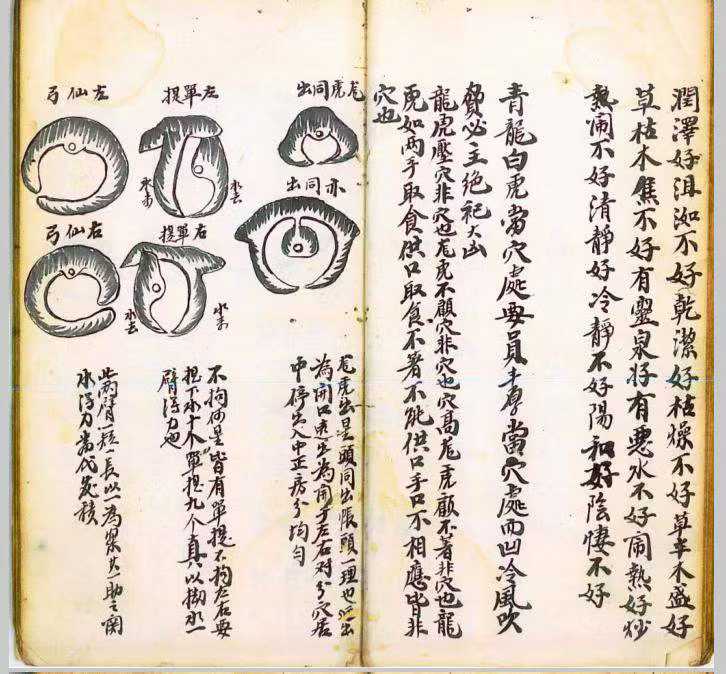 潤澤好沮洳不好乾潔好枯燥不好草木盛好
草枯木焦不好有靈泉好有惡水不好鬧熱好炒
熱鬧不好清靜好冷靜不好陽和好陰悽不好
青龍白虎當穴處要員當穴處而凹冷風吹
必主絕祀大凶
龍虎壓穴非穴也龙虎不顧穴非穴也穴高龙虎顧不著非穴也龍
虎如两手取食供口取食不著不能供口手口不相應皆非
穴也
龙虎同出
亦同出
左單提
水去
水来
右單提
水来
水去
左仙弓
右仙弓
龙虎出是頭同出張頭一理也出
為開口出為開手左右对分穴居
中停出入中正房分均匀
不拘何星皆有單提不拘左右要
提下水十个單提九个真以拗水一
臂得力也
此两臂一短一長以一為案其一助之関
水得力當代發積